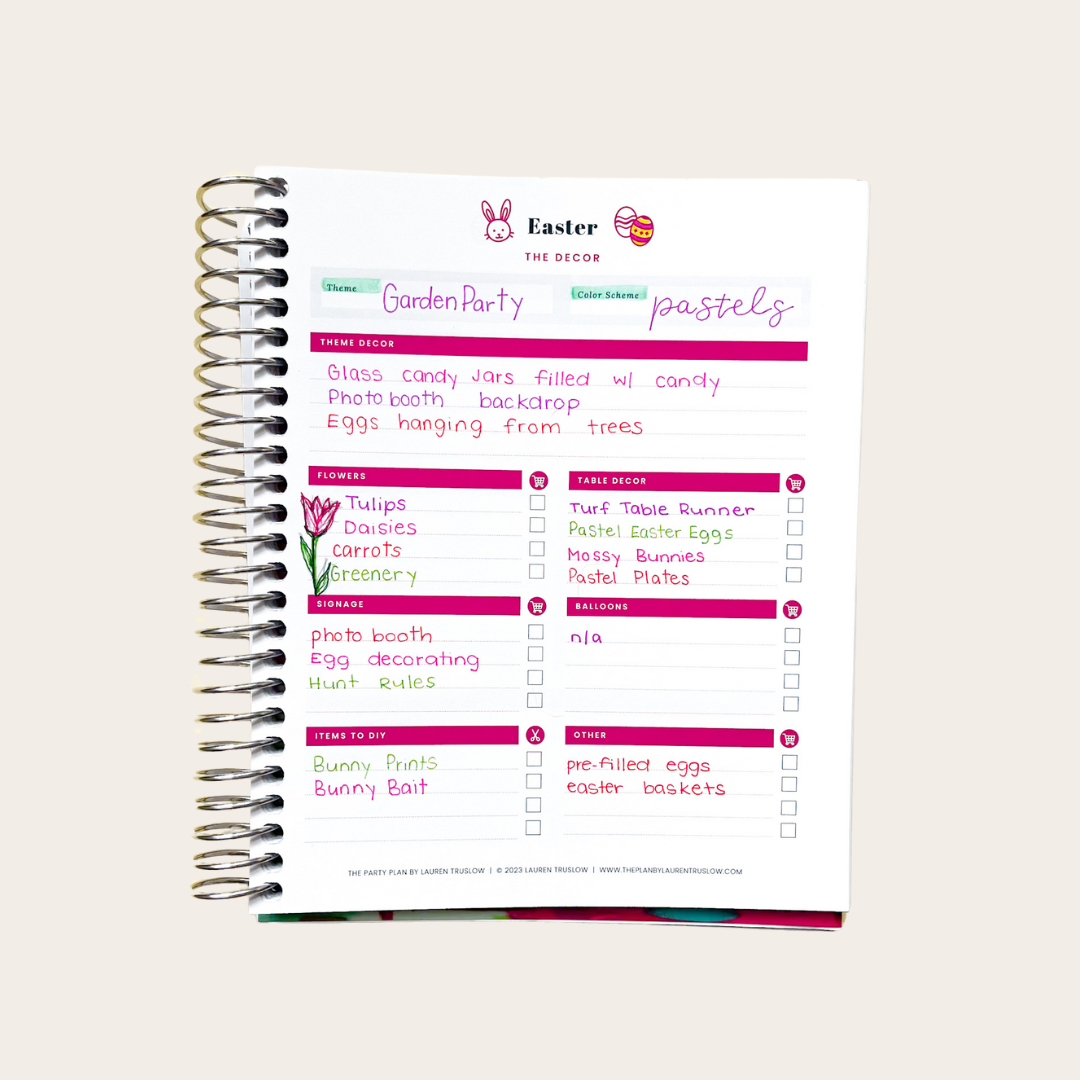 Easter
THE DECOR
Theme Garden Party
Color Scheme pastels
THEME DECOR
Glass candy Jars filled w/ candy
Photo booth backdrop
Eggs hanging from trees
FLOWERS
Tulips
Daisies
carrots
Greenery
TABLE DECOR
Turf Table Runner
Pastel Easter Eggs
Mossy Bunnies
Pastel Plates
SIGNAGE
photo booth
Egg decorating
Hunt Rules
BALLOONS
n/a
ITEMS TO DIY
Bunny Prints
Bunny Bait
OTHER
pre-filled eggs
easter baskets
THE PARTY PLAN BY LAUREN TRUSLOW | © 2023 LAUREN TRUSLOW | WWW.THEPLANBYLAURENTRUSLOW.COM